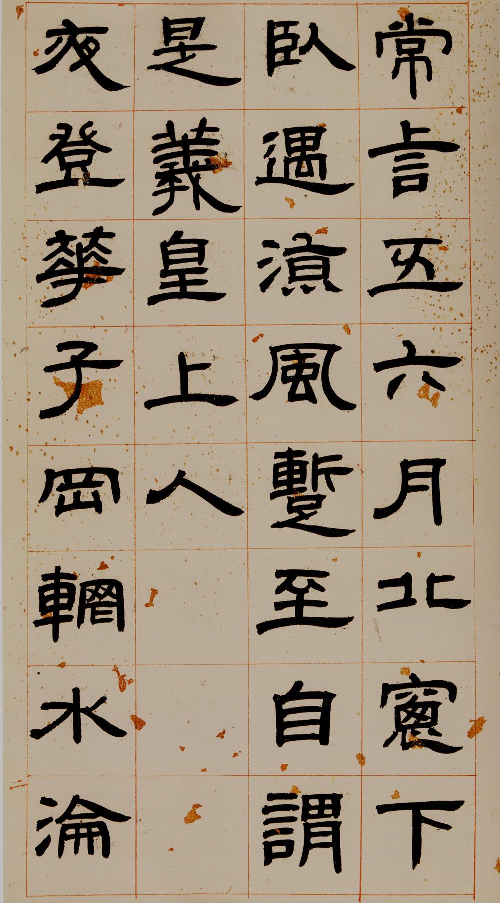 常言五六月北窻下
臥遇涼風蹔至自謂
是羲皇上人
夜登華子岡輞水淪